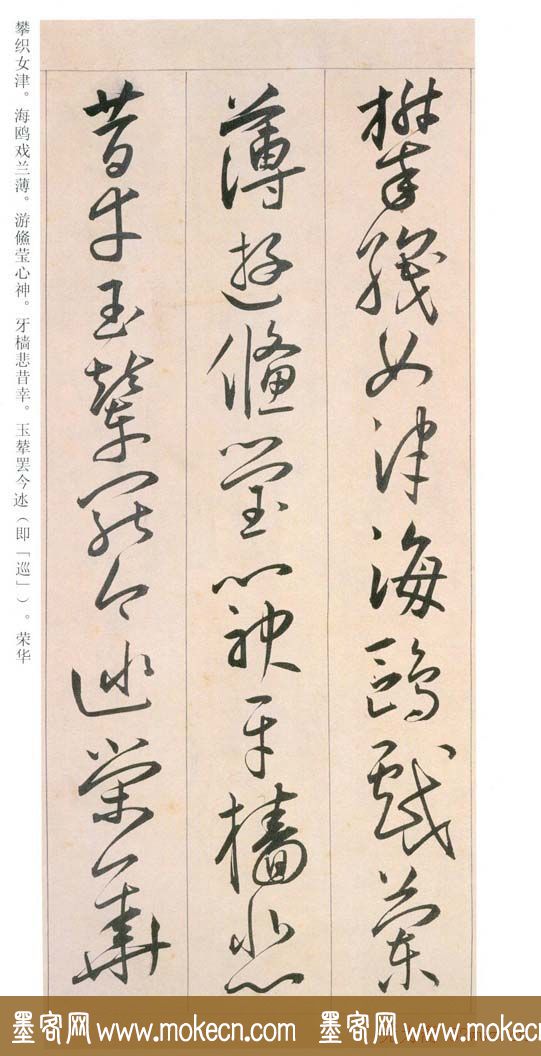 攀织女津。海鸥戏兰薄。游鯈莹心神。牙樯悲昔幸。玉辇罢今迯（即「巡」）。荣华
攀織女津海鷗戲蘭
薄遊鯈瑩心神牙檣悲
昔幸玉輦罷今迯榮華
墨客网 www.mokecn.com 墨客网 www.mokecn.com